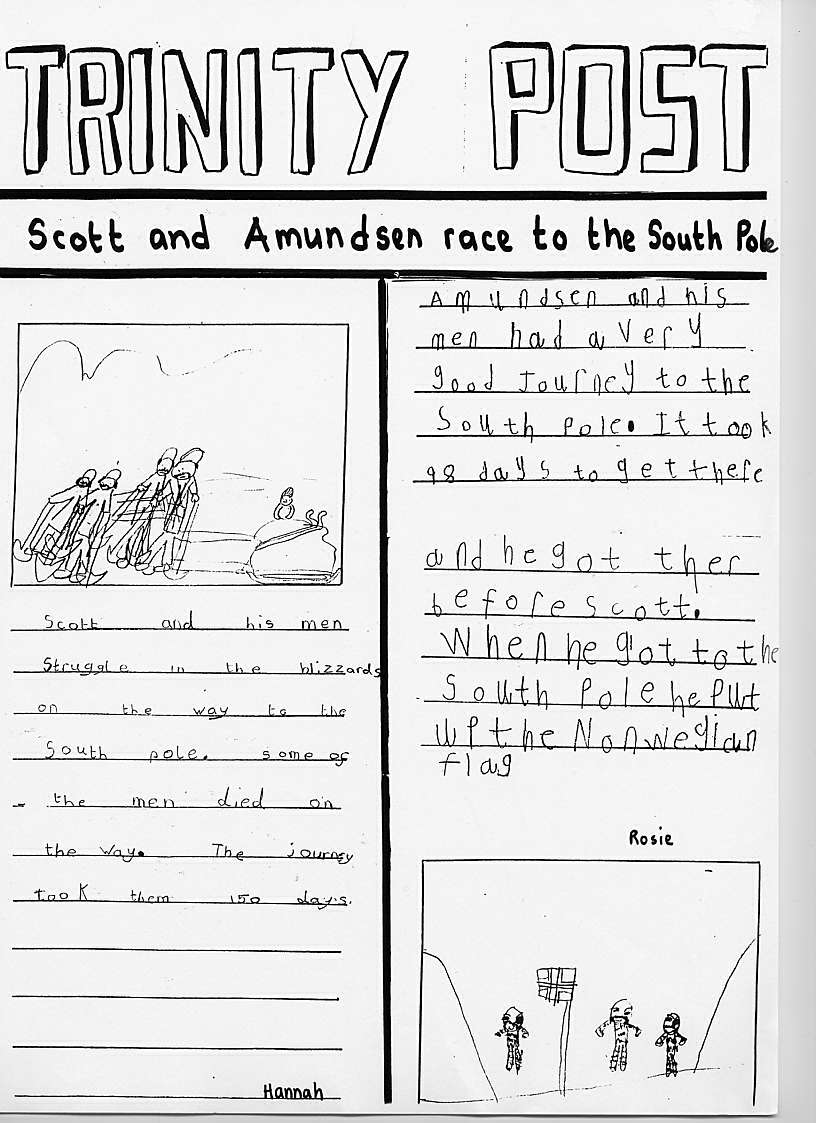 TRINITY POST
Scott and Amundsen race to the South Pole
Scott and his men
Struggle in the blizzards
on the way to the
South pole. some of
the men died on
the way. The journey
took them 150 days.
Hannah
Amundsen and his
men had a very
good Journey to the
South Pole. It took
98 days to get there
and he got ther
before scott.
When he got to the
South Pole he Put
up the Norwegian
flag
Rosie